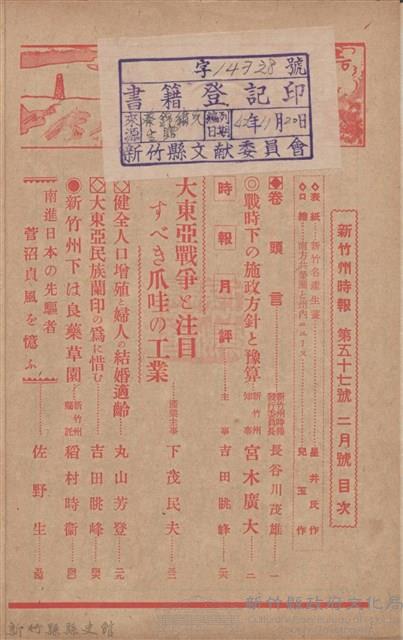 字14328號
書籍登記印
來源
編列日期
42年11月20日
新竹縣文献委員會
新竹州時報 第五十七號 二月號 目次
◇表紙……新竹名產生薑………星井氏作
◇口繪……南方共榮圈と州內ニュース………兒玉作
◆卷頭言………新竹州時報發行委員長 長谷川茂雄…一
◎戰時下の施政方針と豫算…新竹州知事 宮木廣大…二
時報月評………主事 吉田眺峰…
大東亞戰爭と注目
すべき爪哇の工業
……國策主事 下茂民夫…
◇健全人口增殖と婦人の結婚適齡……丸山芳登…
◇大東亞民族蘭印の爲に惜む……吉田眺峰…
◉新竹州下は良藥草園……新竹州囑託 稻村時衞…
南進日本の先驅者
菅沼貞風を憶ふ
……佐野生…
新竹縣政府文化局
Cultural Affairs Bureau
新竹縣縣史館